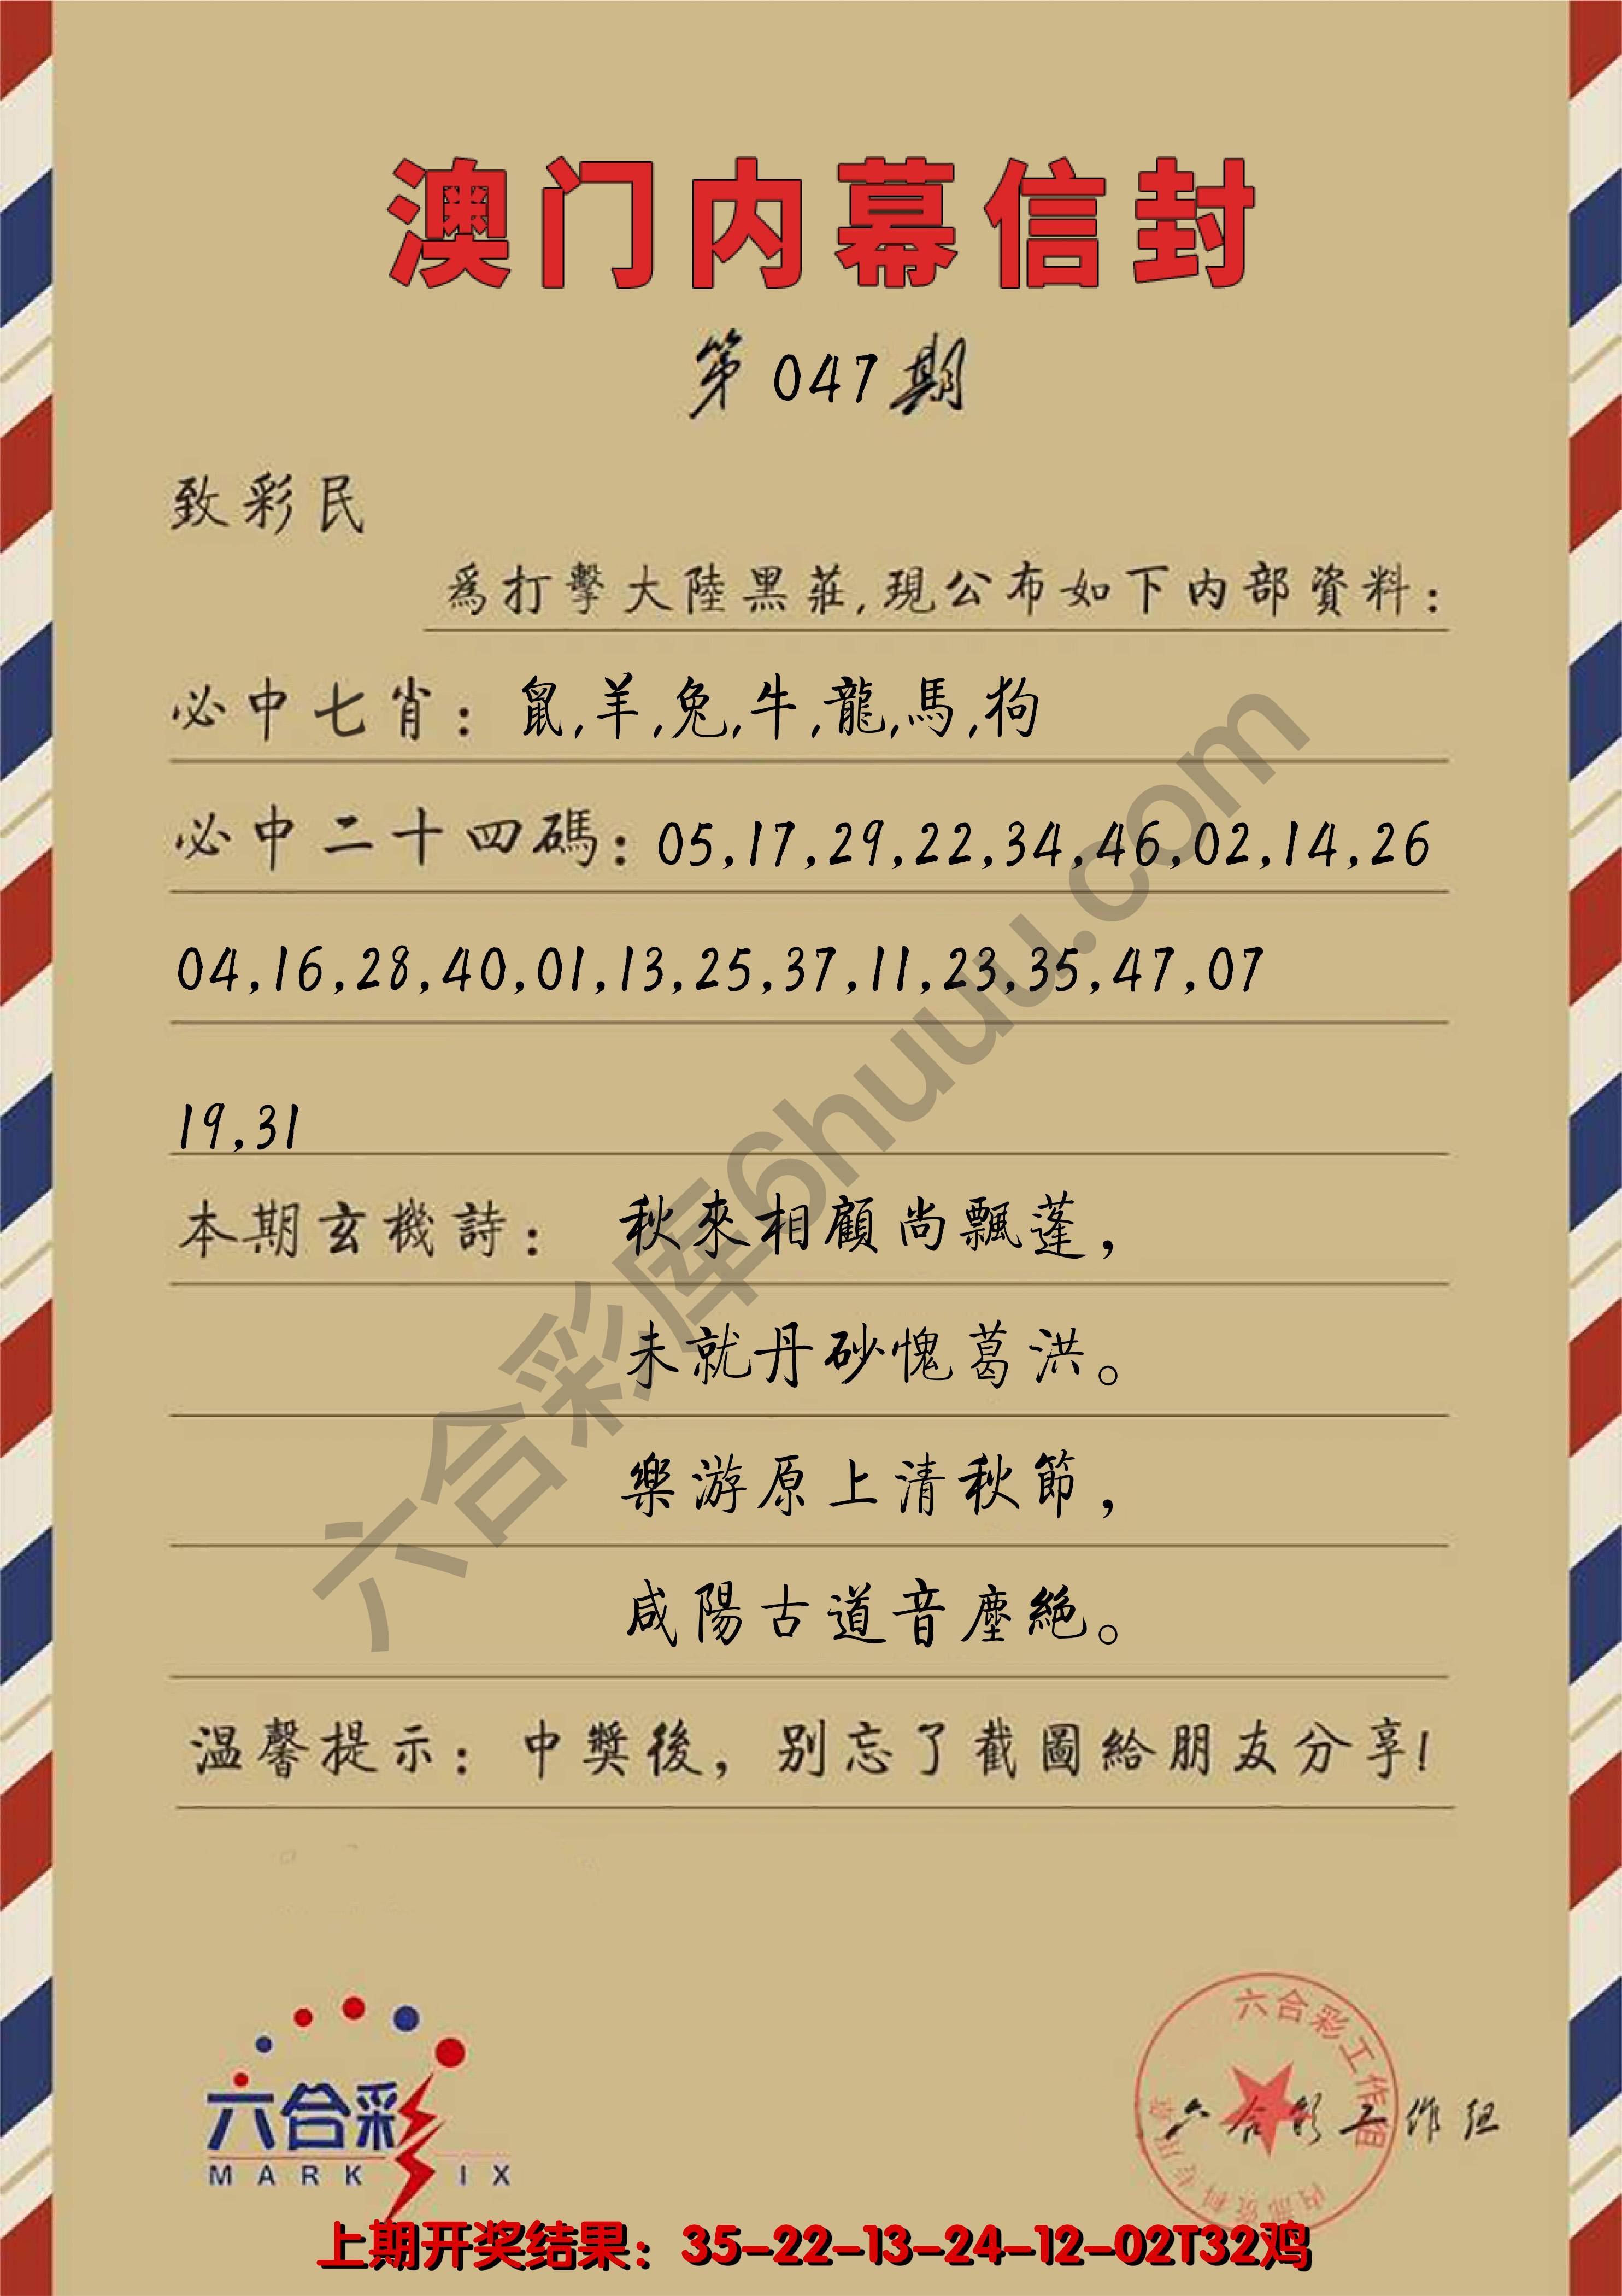 澳门内幕信封
第047期
致彩民
爲打擊大陸黑莊,現公布如下内部資料:
必中七肖: 鼠,羊,兔,牛,龍,馬,狗
必中二十四碼: 05,17,29,22,34,46,02,14,26
04,16,28,40,01,13,25,37,11,23,35,47,07
19,31
本期玄機詩: 秋來相顧尚飄蓬,
未就丹砂愧葛洪。
樂游原上清秋節,
咸陽古道音塵絶。
温馨提示: 中獎後, 别忘了截圖給朋友分享!
六合彩库6huuu.com
六合彩
MARK SIX
六合彩工作组
内部资料专用章
六合彩工作组
上期开奖结果: 35-22-13-24-12-02T32鸡